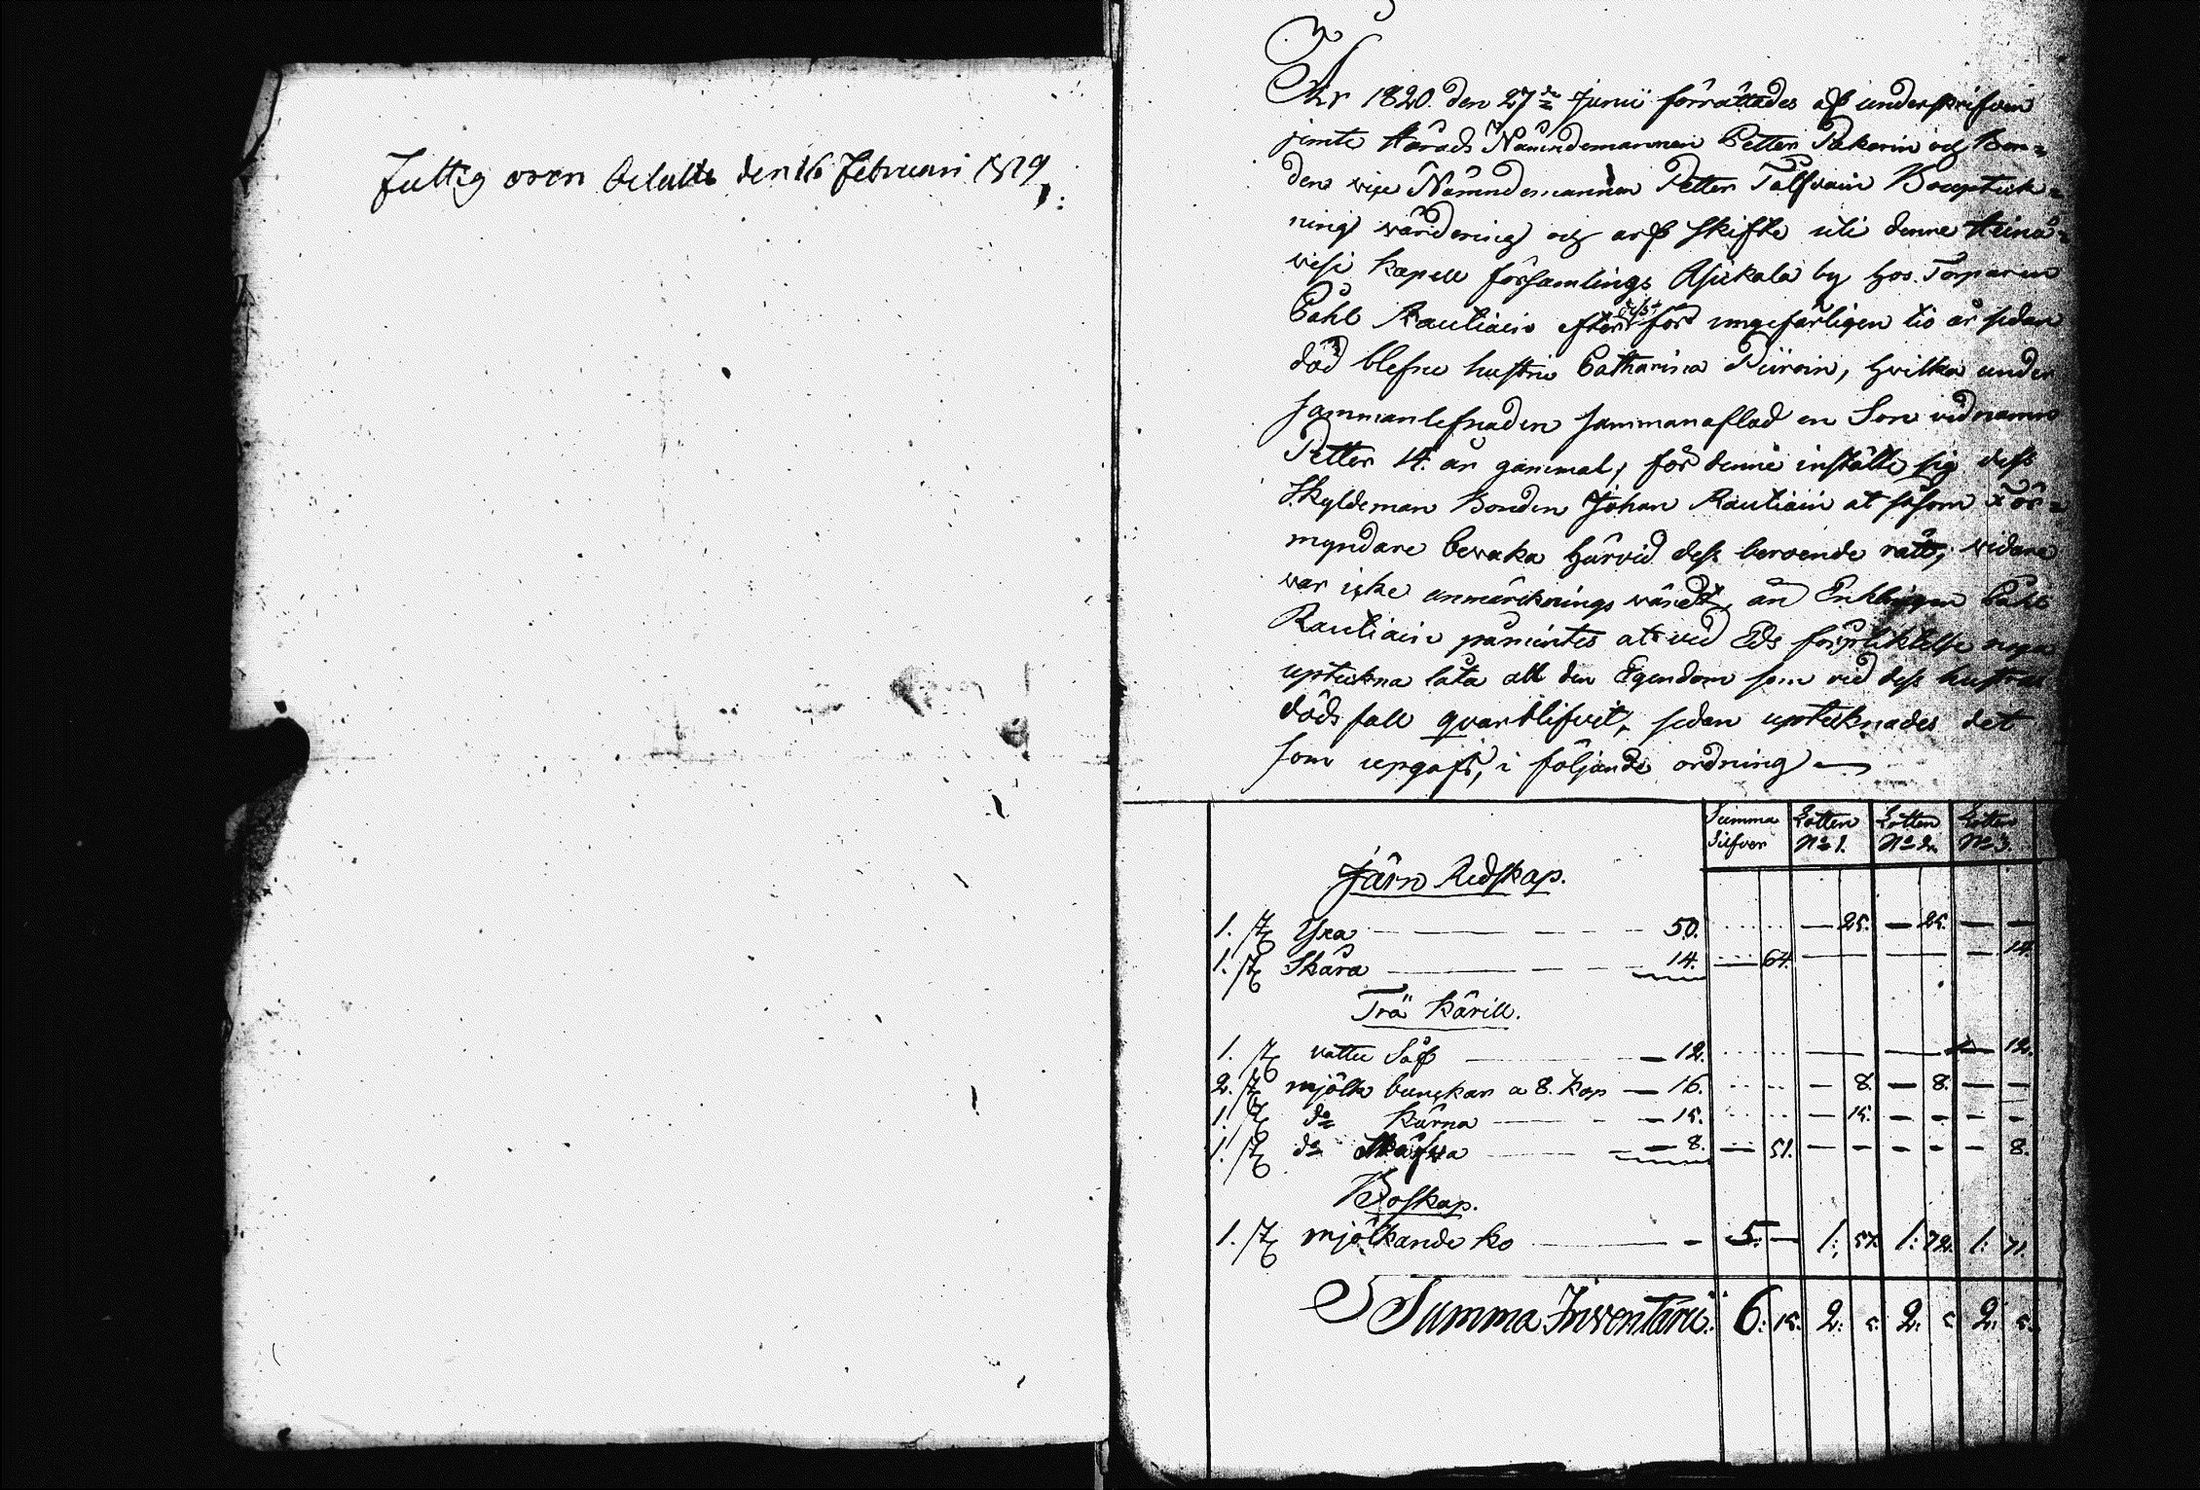 den 16 Februari 1819
År 1820. den 27de Junii förrättades af underskrifven
jemte Härads Nämndemannen Petter Pakarin och Bon=
den vice Nämndemannen Petter Talfvain Bouptek=
ning värdering och arfskifte uti denne Heinä=
vesi Kapell församlings by hos Torparen
Påhl Rautiain efter dess för ungefärligen tio år sedan
död blefne hustru Catharina Piiroin, hvilka under
sammanlefnaden sammanaflad en Son vid namn
Petter 14 år gammal, för denne instälte sig dess
Skyldeman Bonden Johan Rautiain at såsom För=
myndare bevaka härvid dess beroende rätt, vidare
var icke anmärcknings värdt, än Enklingen Påhl
Rautiain påmintes at vid Eds förpliktelse noga
uptekna låta all den Egendom som vid dess hustrus
dödsfall qvarblifvit, sedan upteknades det
som upgafs, i följande ordning —
Summa Silfver Lotten No 1. Lotten No 2. Lotten No 3.
Järn Redskap.
1. st Yxa — 50. — 25. — 25. — —
1. st Skära — 14. — 64. — — — 14.
Trä Kärill.
1. st vattu Så — 12. — — — 12.
2. st mjölk bunckar a 8. Kop — 16. — 8. — 8. — —
1. st do Kärna — 15. — 15. — — — —
1. st do — 8. — 51. — — — — — 8.
Boskap.
1. st mjölkande ko — 5. — 1: 57. 1: 72. 1: 71.
Summa Inventarii: 6: 15. 2: 5. 2: 5. 2: 5.